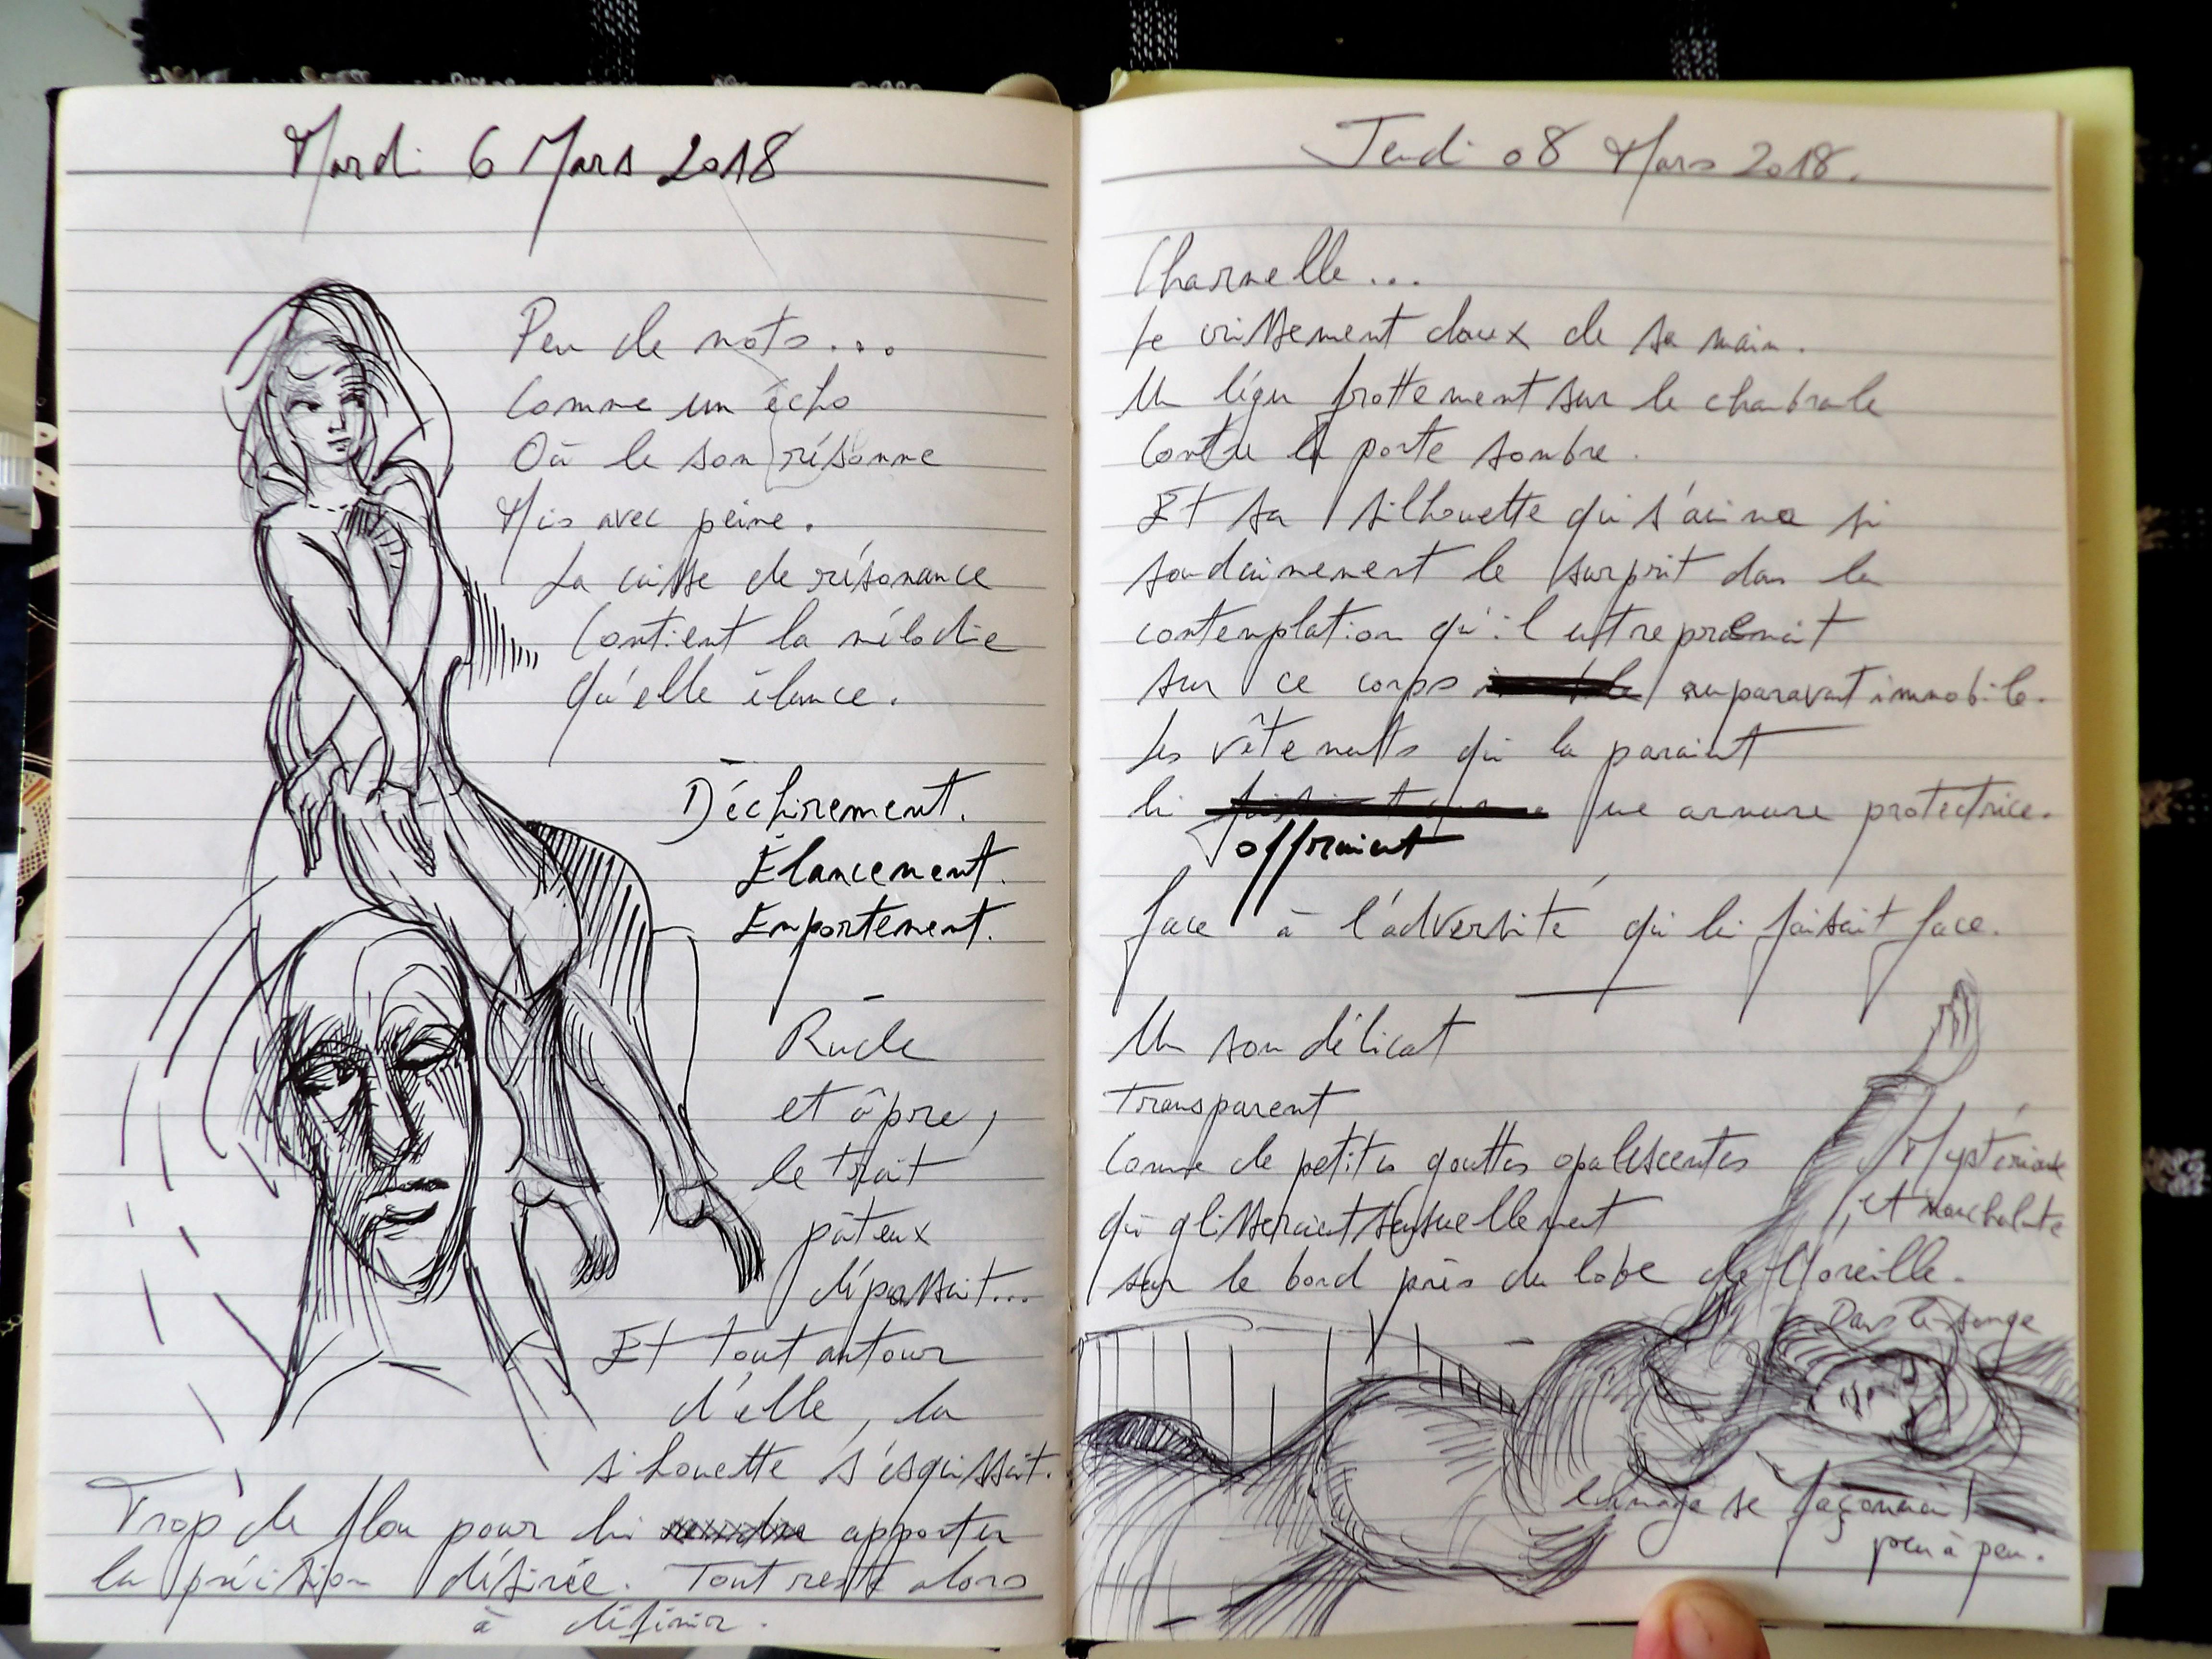 Mardi 6 Mars 2018
Peu de mots...
Comme un écho
Où le son résonne
Mis avec peine.
La caisse de résonance
Contient la mélodie
qu'elle élance.
Déchirement.
Élancement.
Emportement.
Rude
et âpre,
le trait
pâteux
dépassait...
Et tout autour
d'elle, la
silhouette s'esquissait.
Trop de flou pour lui apporter
la précision désirée. Tout reste alors
à définir.
Jeudi 08 Mars 2018.
Charnelle...
Le crissement doux de sa main.
Un léger frottement sur le chambranle
Contre la porte sombre.
Et sa silhouette qui s'anima si
soudainement le surprit dans la
contemplation qu'il entreprenait
sur ce corps auparavant immobile.
Les vêtements qui la paraient
lui offraient une armure protectrice.
face à l'adversité qui lui faisait face.
Un son délicat
Transparent
Comme de petites gouttes opalescentes
qui glisseraient sensuellement
sur le bord près du lobe de l'oreille.
Mystérieuse
et nonchalante
Dans le songe
l'image se façonnait
peu à peu.